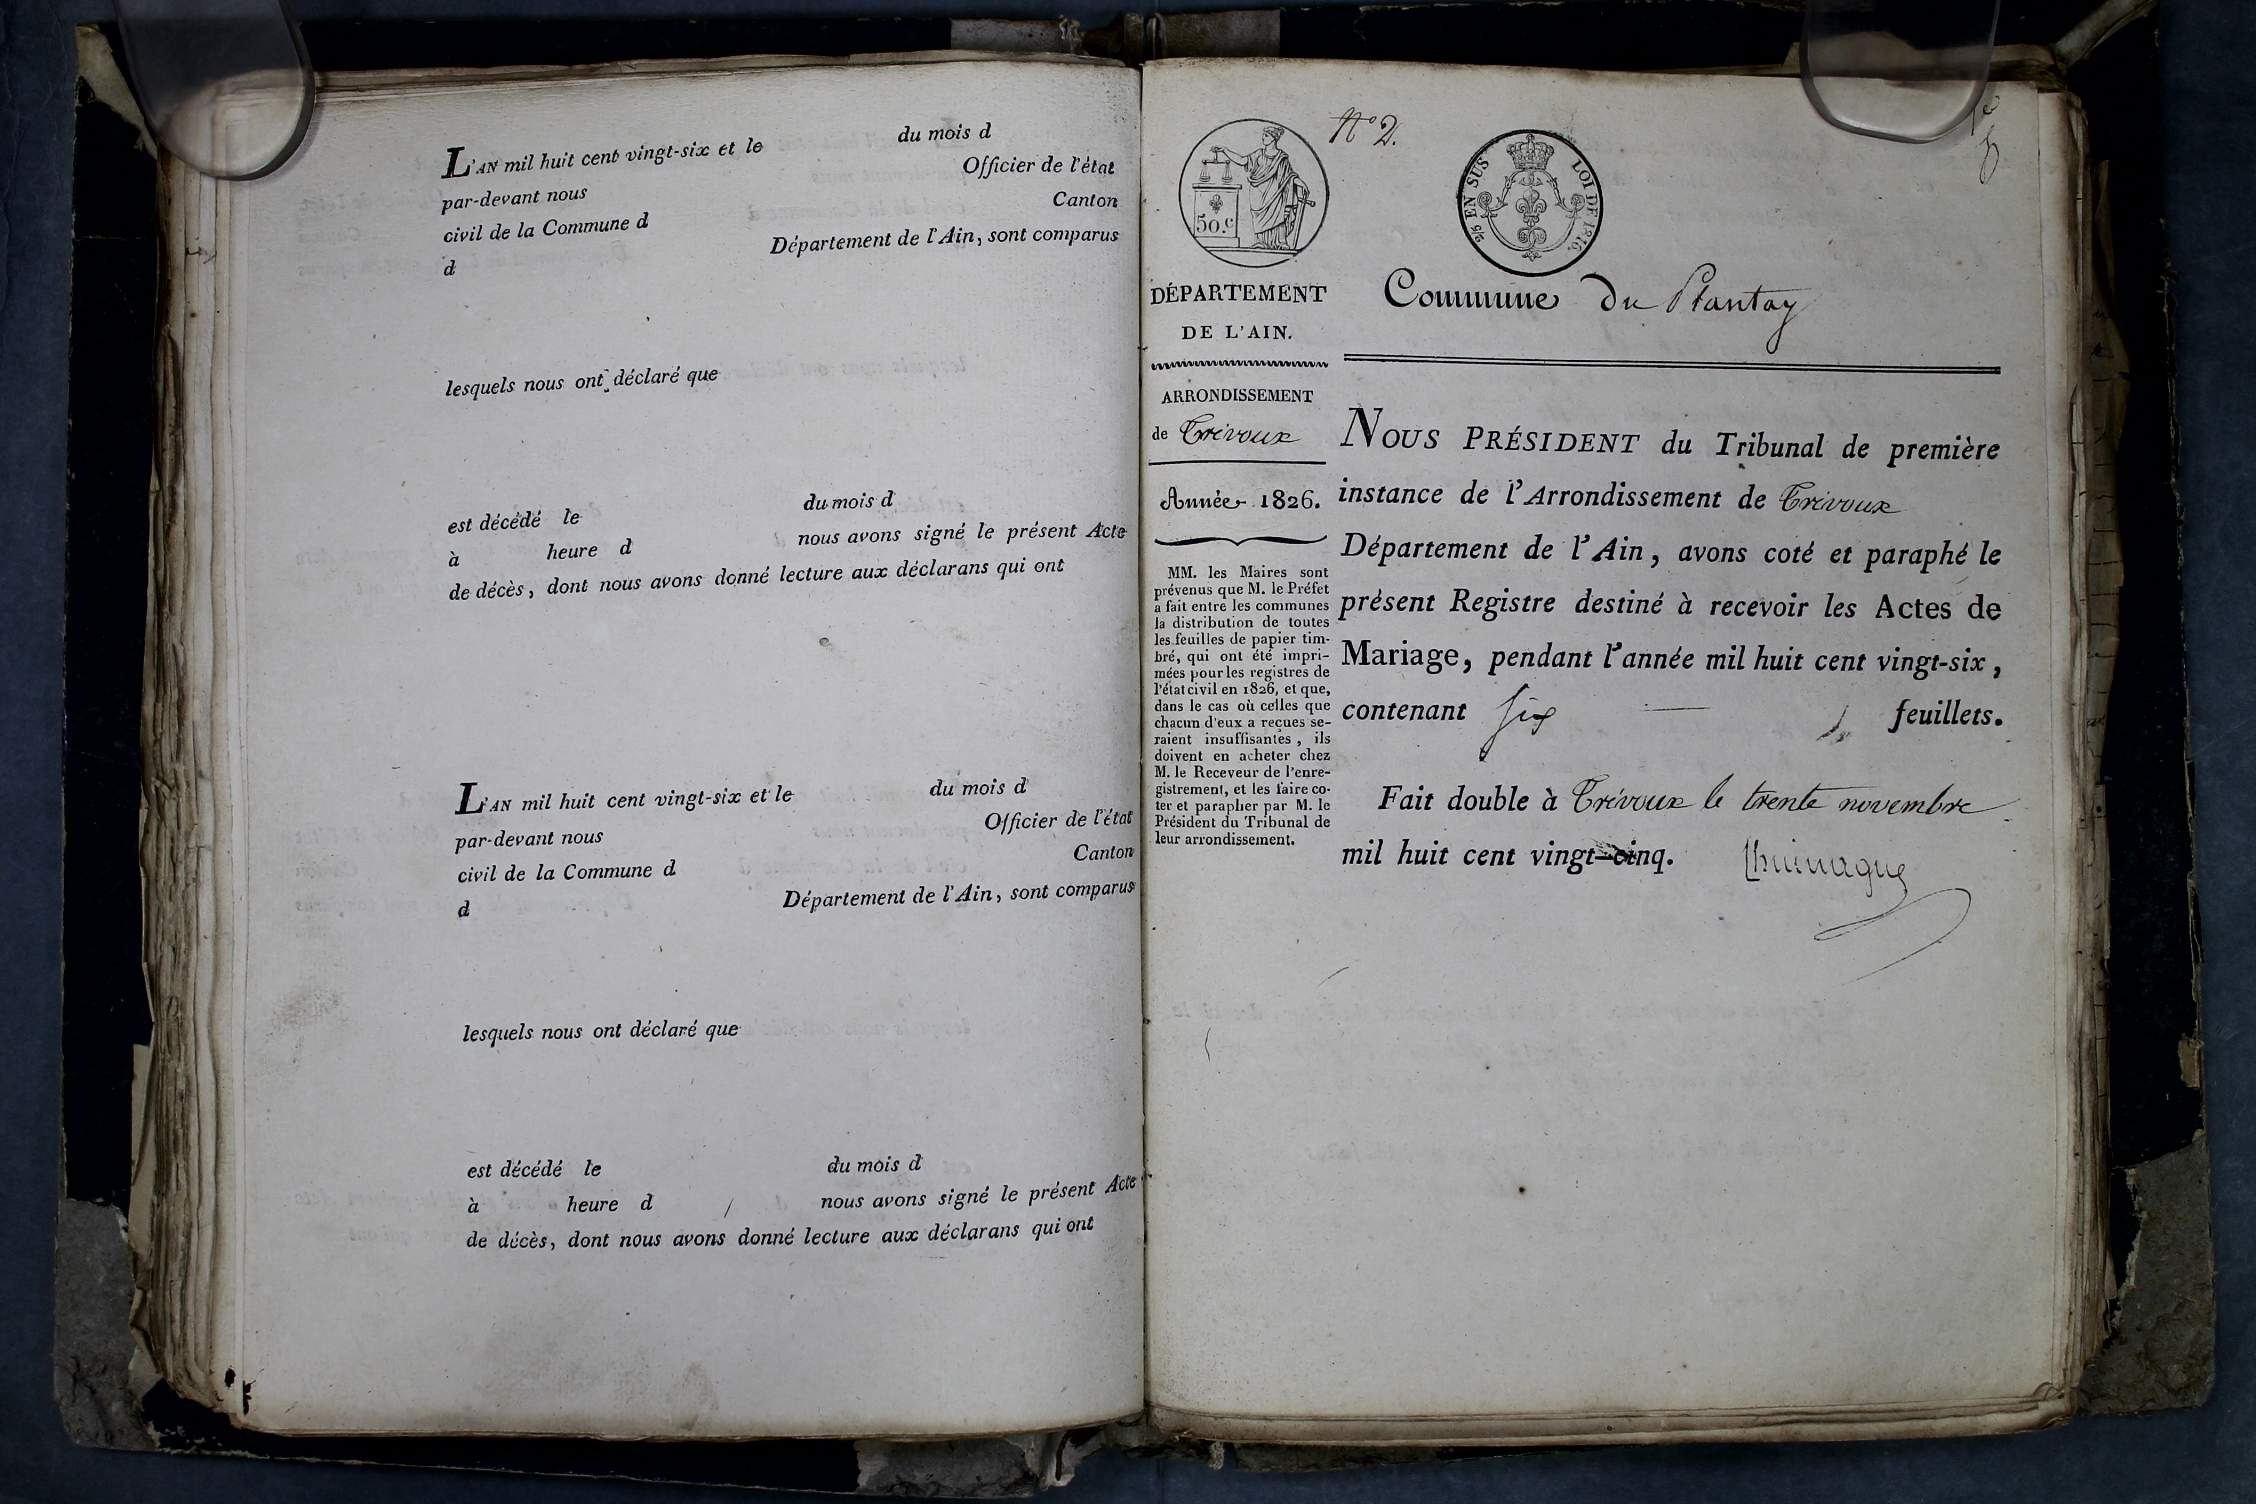 L'AN mil huit cent vingt-six et le du mois d
par-devant nous Officier de l'état
civil de la Commune d Canton
d Département de l'Ain, sont comparus
lesquels nous ont déclaré que
est décédé le du mois d
à heure d nous avons signé le présent Acte
de décès, dont nous avons donné lecture aux déclarans qui ont
L'AN mil huit cent vingt-six et le du mois d
par-devant nous Officier de l'état
civil de la Commune d Canton
d Département de l'Ain, sont comparus
lesquels nous ont déclaré que
est décédé le du mois d
à heure d nous avons signé le présent Acte
de décès, dont nous avons donné lecture aux déclarans qui ont
N° 2.
50.c
2/5 EN SUS LOI DE 1816.
DÉPARTEMENT
DE L'AIN.
ARRONDISSEMENT
de Trévoux
Année 1826.
MM. les Maires sont
prévenus que M. le Préfet
a fait entre les communes
la distribution de toutes
les feuilles de papier tim-
bré, qui ont été impri-
mées pour les registres de
l'état civil en 1826, et que,
dans le cas où celles que
chacun d'eux a reçues se-
raient insuffisantes, ils
doivent en acheter chez
M. le Receveur de l'enre-
gistrement, et les faire co-
ter et parapher par M. le
Président du Tribunal de
leur arrondissement.
Commune du Plantay
NOUS PRÉSIDENT du Tribunal de première
instance de l'Arrondissement de Trévoux
Département de l'Ain, avons coté et paraphé le
présent Registre destiné à recevoir les Actes de
Mariage, pendant l'année mil huit cent vingt-six,
contenant six feuillets.
Fait double à Trévoux le trente novembre
mil huit cent vingt-cinq.